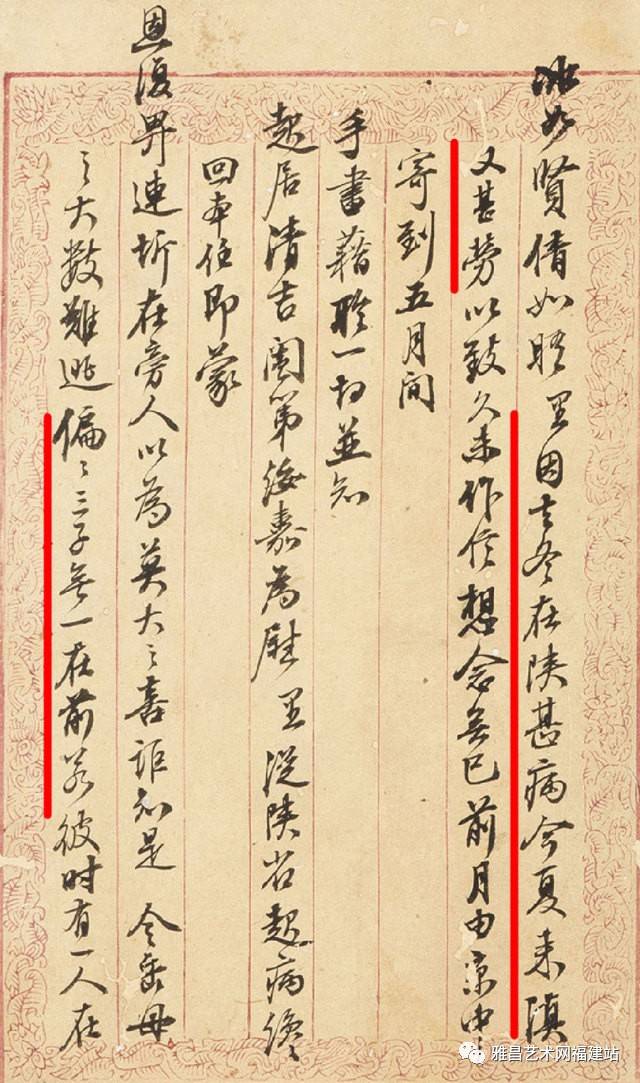 冰如賢倩如晤 因去冬在陝甚病今夏來滇
又甚勞以致久未作信想念無已前月由京中
寄到五月間
手書藉聆一切並知
起居清吉闔第綏嘉為慰 從陝省起病纔
回本任即蒙
恩復畀連圻在旁人以為莫大之喜詎知是 令岳母
之大數難逃偏〻三子無一在前若彼時有一人在
雅昌艺术网福建站